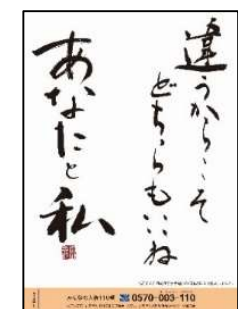 違うからこそ
どちらもいいね
あなたと私
みんなの人権110番 0570-003-110